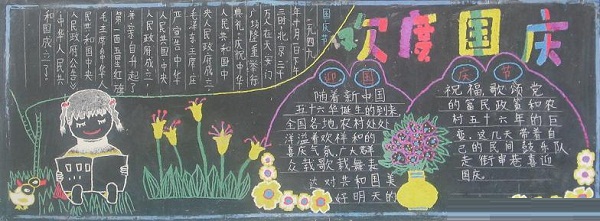 欢度国庆
国庆节
一九四九
年十月一日下午
三时,北京三十
万人在天安门
广场隆重举行
典礼,庆祝中华
人民共和国中
央人民政府成立
毛泽东主席庄
严宣告中华
人民共和国中央
人民政府成立,
并亲自升起了
第一面五星红旗
毛主席
人民共和国中央
人民政府公告》
中华人民共
和国成立了
迎国
随着新中国
五十六华诞生的到来
全国各地农村处处
洋溢着欢祥和的
喜庆气氛,广大群
众载歌载舞走
达对共和国美
好明天的
庆节
祝福,歌颂党
的富民政策和农
村五十六年的巨
变,这几天带着自
己的民间鼓乐队
走街串巷喜迎
国庆。